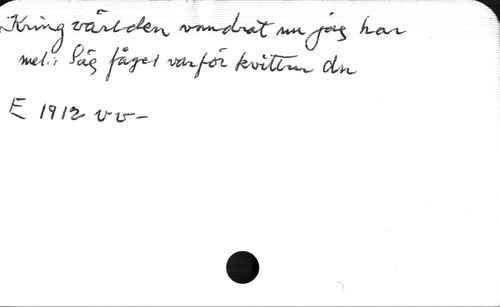 Kring världen vandrat nu jag har
mel.: Säg fågel varför kvittrar du
E 1912 vv-